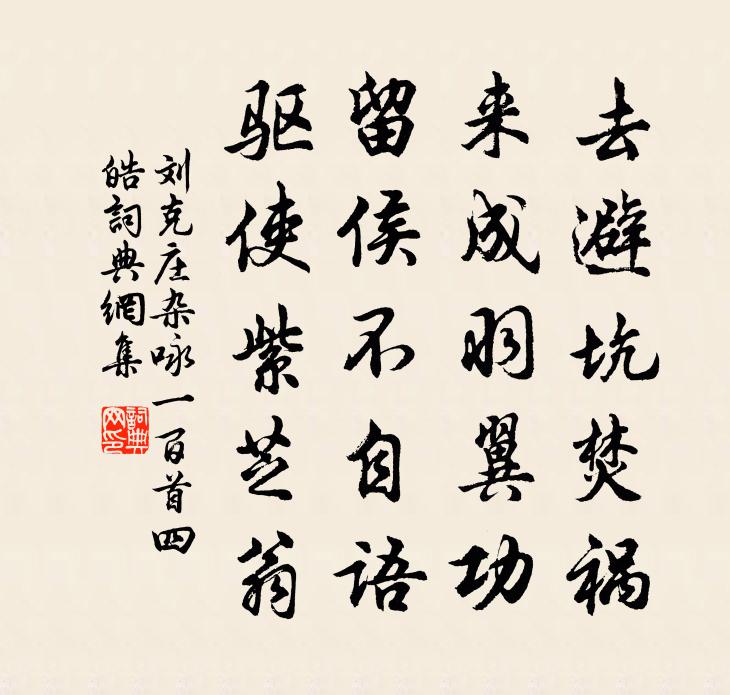 去避坑焚祸
来成羽翼功
留侯不自语
驱使紫芝翁
刘克庄杂咏一百首四
皓詞典網集
詞典网印